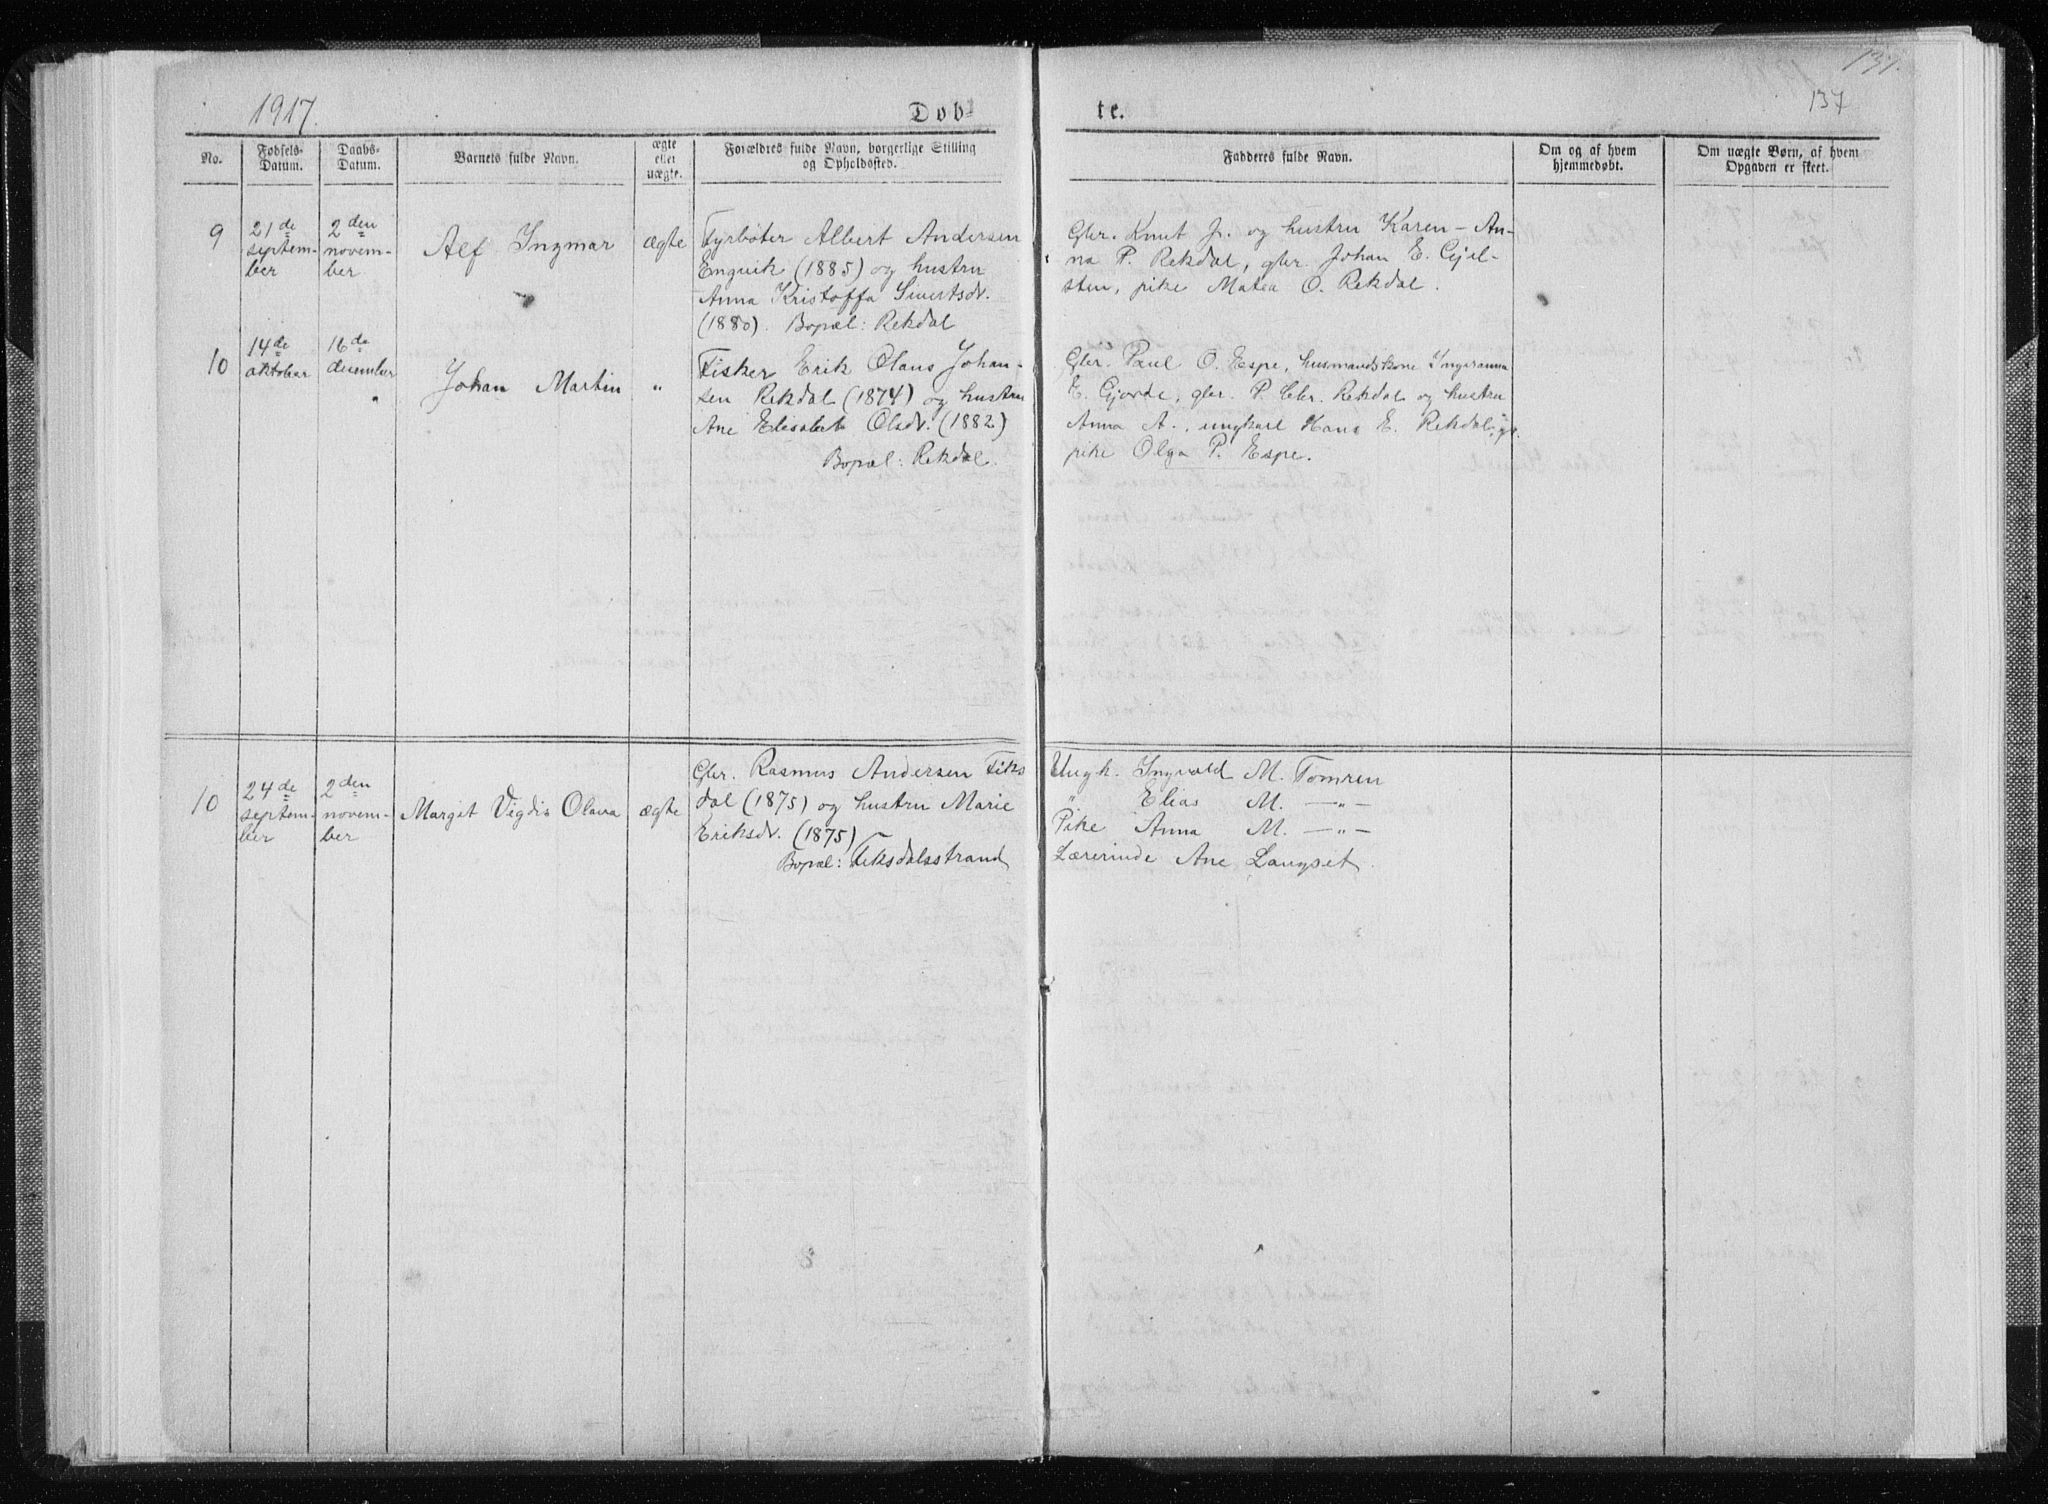 1917.
Døb-
te.
137.
137
No.
Fødsels-
Datum.
Daabs-
Datum.
Barnets fulde Navn.
ægte
eller
uægte.
Forældres fulde Navn, borgerlige Stilling
og Opholdssted.
Fadderes fulde Navn.
Om og af hvem
hjemmedøbt.
Om uægte Børn, af hvem
Opgaven er skeet.
9
21de
septem-
ber
2den
novem-
ber
Alf Ingmar
ægte
Fyrbøter Albert Andersen
Engvik (1885) og hustru
Anna Kristoffa Sivertsdt.
(1880). Bopæl: Rekdal
Gbr. Knut J. og hustru Karen-An-
na P. Rekdal, gbr. Johan E. Gjel-
sten, pike Matea O. Rekdal.
10
14de
oktober
16de
december
Johan Martin
"
Fisker Erik Olaus Johan-
sen Rekdal (1874) og hustru
Ane Elisabet Olsdt. (1882)
Bopæl: Rekdal.
Gbr. Paul O. Espe, husmandskone
E. Gjerde, gbr. P. Chr. Rekdal og hustru
Anna A., ungkarl Hans E. Rekdal,
pike Olga P. Espe.
10
24de
septem-
ber
2den
novem-
ber
Margit Vigdis Olava
ægte
Gbr. Rasmus Andersen Fiks
dal (1875) og hustru Marie
Eriksdt. (1875)
Bopæl: Fiksdalsstrand
Ungk. Ingvald M. Tomren
" Elias M. —"—
Pike Anna M. —"—
Lærerinde Ane Langset.